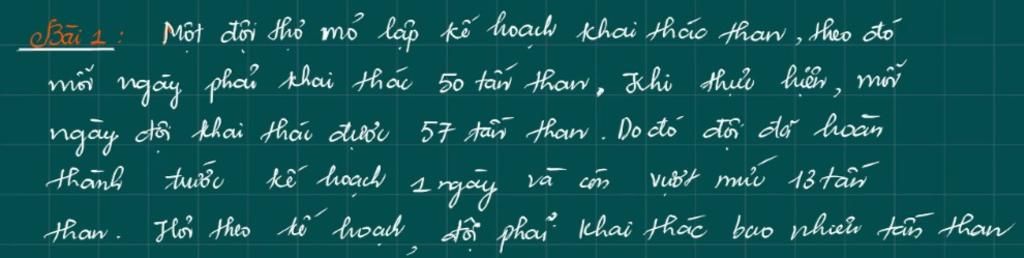 Bài 1 : Một đội thỏ mỏ lập kế hoạch khai thác than, theo đó
mỗi ngày phải khai thác 50 tấn than. Khi thực hiện, mỗi
ngày đội khai thác được 57 tấn than. Do đó đội đã hoàn
thành trước kế hoạch 1 ngày và còn vượt mức 13 tấn
than. Hỏi theo kế hoạch, đội phải khai thác bao nhiêu tấn than